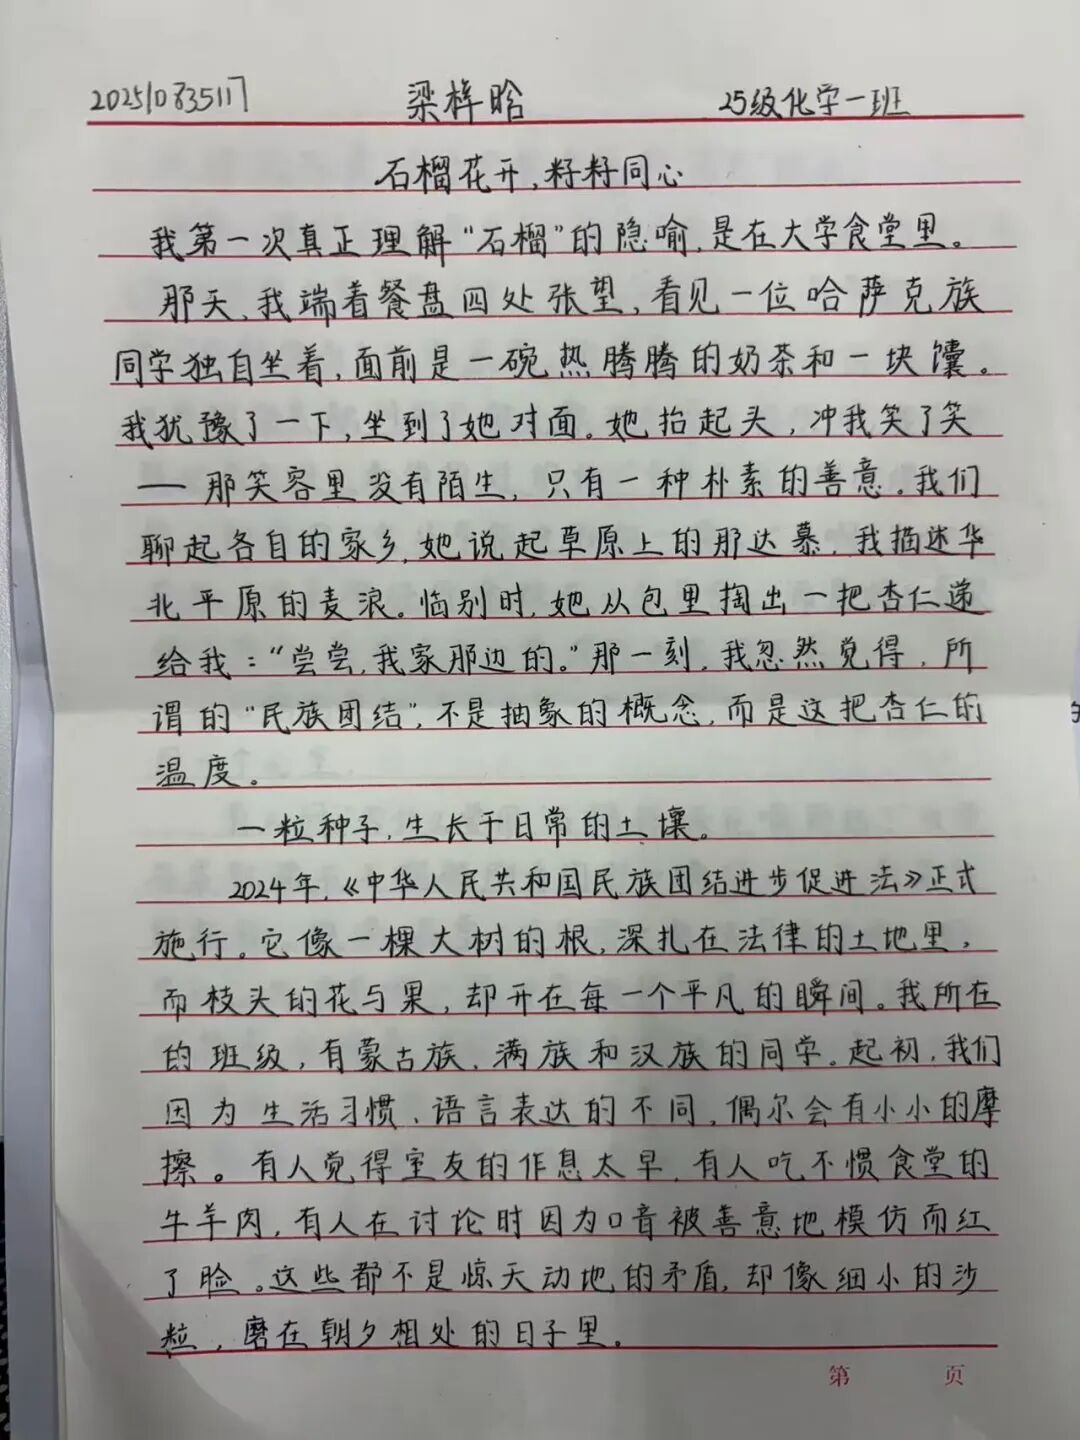 202510835117 梁梓晗 25级化学一班
石榴花开，籽籽同心
我第一次真正理解“石榴”的隐喻，是在大学食堂里。
那天，我端着餐盘四处张望，看见一位哈萨克族
同学独自坐着，面前是一碗热腾腾的奶茶和一块馕。
我犹豫了一下，坐到了她对面。她抬起头，冲我笑了笑
——那笑容里没有陌生，只有一种朴素的善意。我们
聊起各自的家乡，她说起草原上的那达慕，我描述华
北平原的麦浪。临别时，她从包里掏出一把杏仁递
给我：“尝尝，我家那边的。”那一刻，我忽然觉得，所
谓的“民族团结”，不是抽象的概念，而是这把杏仁的
温度。
一粒种子，生长于日常的土壤。
2024年，《中华人民共和国民族团结进步促进法》正式
施行。它像一棵大树的根，深扎在法律的土地里，
而枝头的花与果，却开在每一个平凡的瞬间。我所在
的班级，有蒙古族、满族和汉族的同学。起初，我们
因为生活习惯、语言表达的不同，偶尔会有小小的摩
擦。有人觉得室友的作息太早，有人吃不惯食堂的
牛羊肉，有人在讨论时因为口音被善意地模仿而红
了脸。这些都不是惊天动地的矛盾，却像细小的沙
粒，磨在朝夕相处的日子里。
第 页